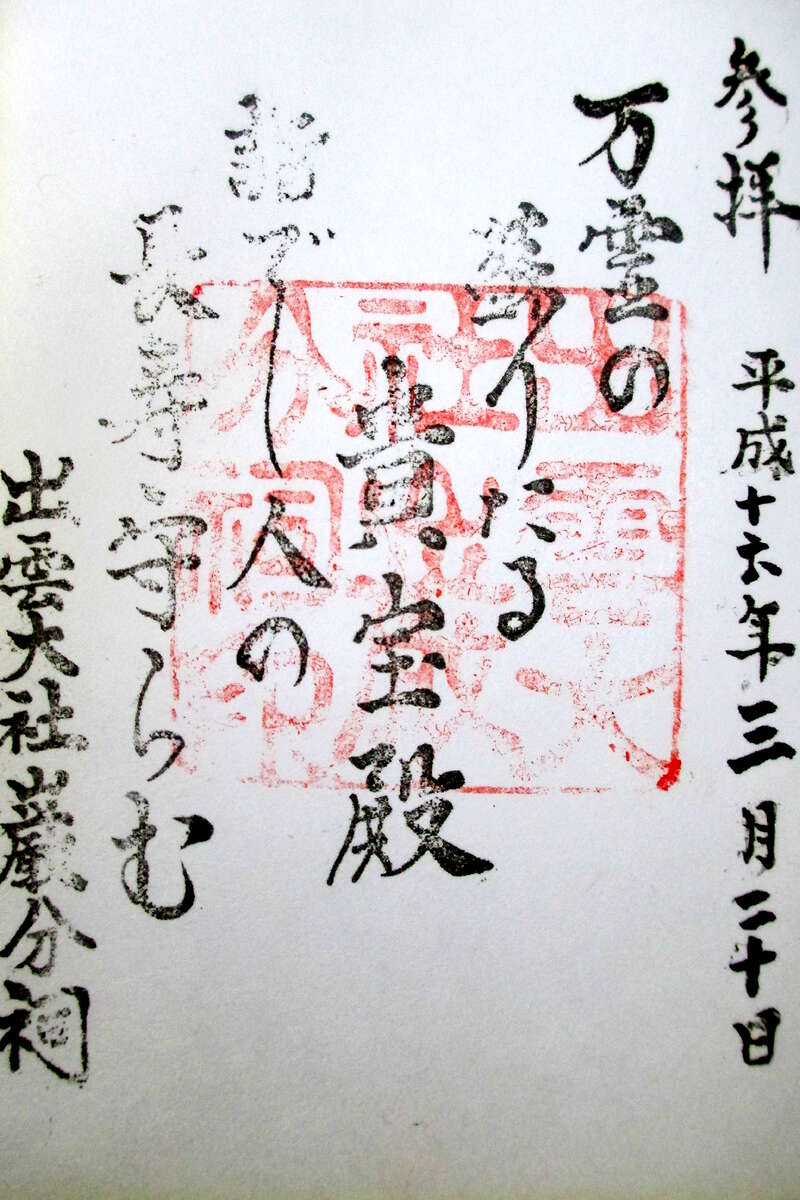 参拝 平成十六年三月二十日
万霊の
りたる
貴宝殿
詣でし人の
長寿守らむ
出雲大社巌分祠
出雲大
社
分祠印